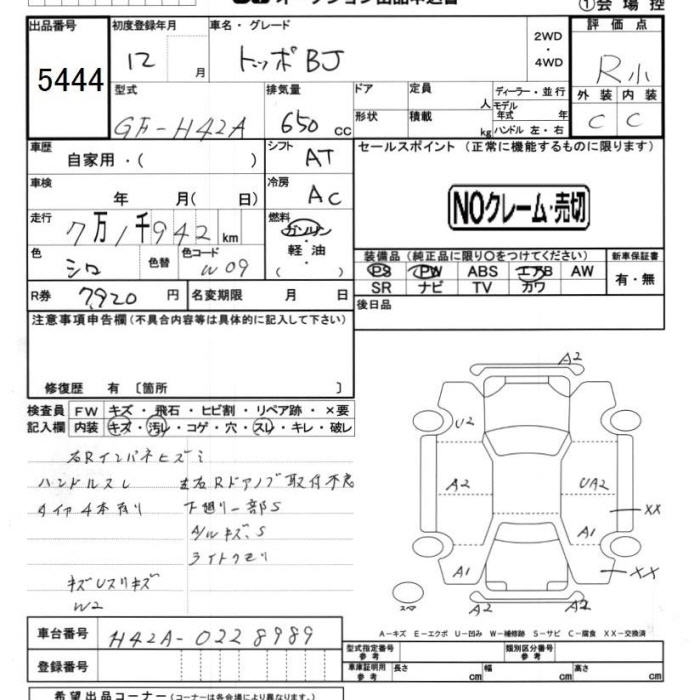 ①会場控
出品番号
5444
初度登録年月
12 月
車名・グレード
トッポBJ
2WD
・
4WD
評価点
R小
外装 内装
C C
型式
GF-H42A
排気量
650 cc
ドア
形状
定員 人
積載 kg
ディーラー・並行
モデル年式 年
ハンドル 左・右
車歴
自家用・( )
シフト
AT
車検
年 月( 日)
冷房
AC
走行
7万1千942 km
燃料
ガソリン
・
軽油
( )
色
シロ
色替
色コード
W09
R券
7,920 円
名変期限 月 日
セールスポイント (正常に機能するものに限ります)
NOクレーム・売切
装備品 (純正品に限り○をつけてください)
PS PW ABS エアB AW
SR ナビ TV カワ
新車保証書
有・無
後日品
注意事項申告欄(不具合内容等は具体的に記入して下さい)
修復歴 有 〔箇所 〕
検査員記入欄
FW キズ・飛石・ヒビ割・リペア跡・×要
内装 キズ・汚レ・コゲ・穴・スレ・キレ・破レ
右Rインパネヒズミ
ハンドルスレ
左右Rドアノブ取付不良
タイヤ4本有り
下廻り一部S
A/Wキズ、S
ライトクモリ
キズUスリキズ
W2
A2
U2
A2
UA2
XX
A1
A1
XX
A2
A2
スマ
A-キズ E-エクボ U-凹み W-補修跡 S-サビ C-腐食 XX-交換済
車台番号
H42A-0228989
登録番号
型式指定番号
参考
類別区分番号
参考
車庫証明用
参考
長さ cm
幅 cm
高さ cm
希望出品コーナー (コーナーは各会場により異なります。)